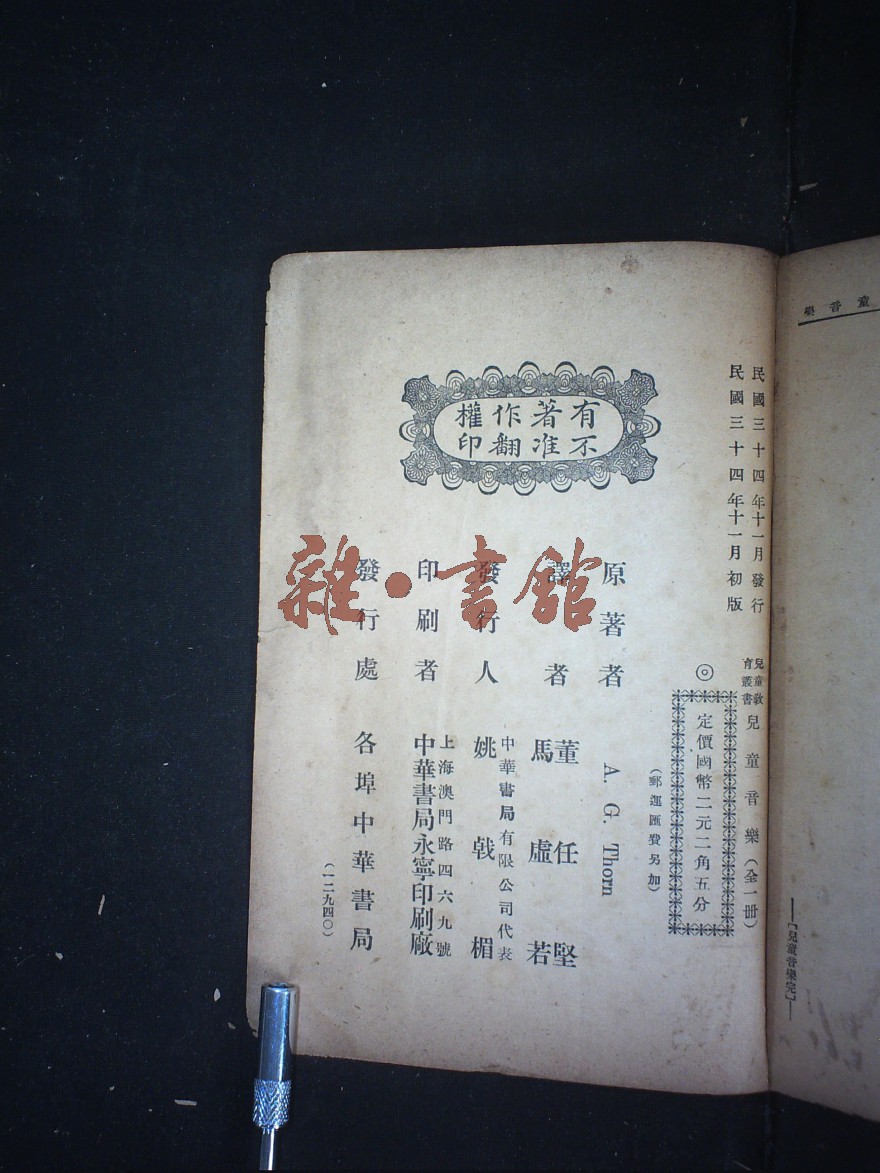 童音樂
——[兒童音樂完]——
民國三十四年十一月發行
民國三十四年十一月初版
兒童教育叢書 兒童音樂（全一冊）
◎ 定價國幣二元二角五分
（郵運匯費另加）
有著作權
不准翻印
原著者 A. G. Thorn
譯者 董任堅
馬虛若
發行人 中華書局有限公司代表
姚戟楣
印刷者 上海澳門路四六九號
中華書局永寧印刷廠
發行處 各埠中華書局
（一二九四〇）
雜·書館